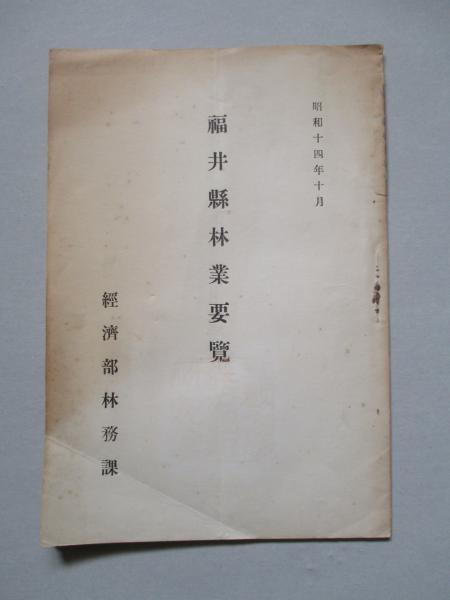 昭和十四年十月
福井縣林業要覽
經濟部林務課